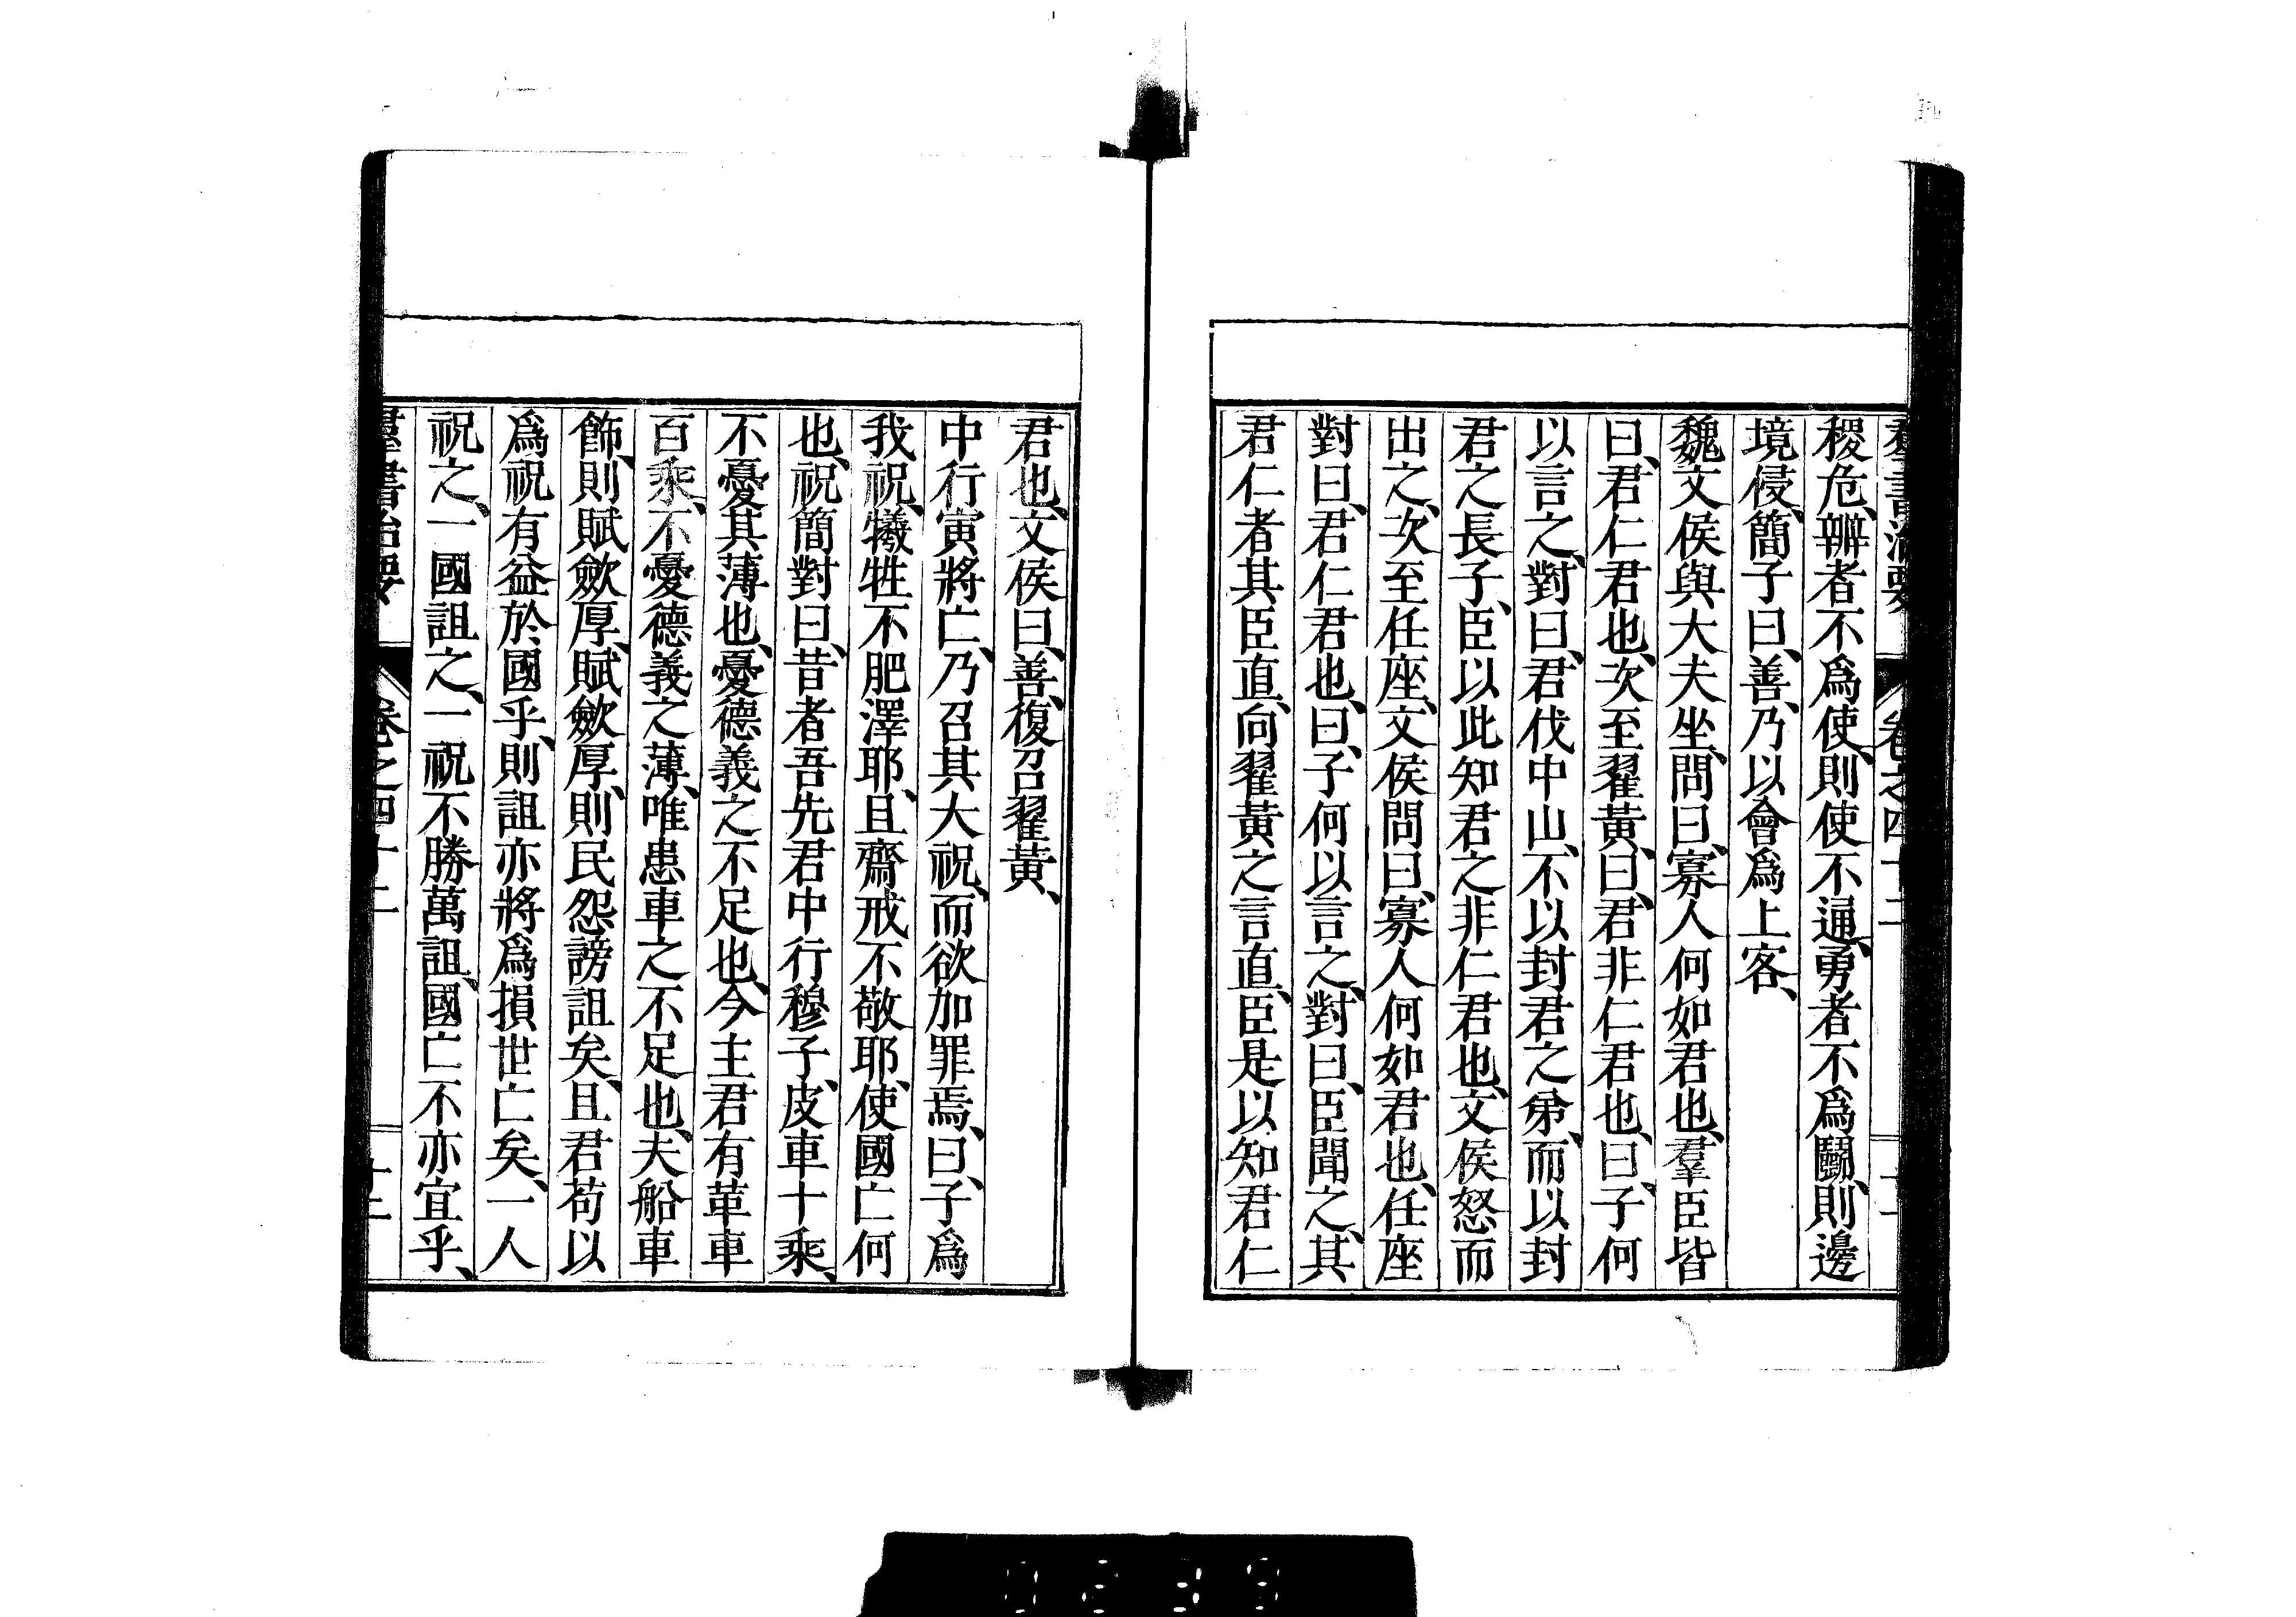 羣書治要 卷之四十二 十一
稷危、辯者不爲使、則使不通、勇者不爲鬭、則邊
境侵、簡子曰、善、乃以會爲上客、
魏文侯與大夫坐、問曰、寡人何如君也、羣臣皆
曰、君仁君也、次至翟黃、曰、君非仁君也、曰、子何
以言之、對曰、君伐中山、不以封君之弟、而以封
君之長子、臣以此知君之非仁君也、文侯怒而
出之、次至任座、文侯問曰、寡人何如君也、任座
對曰、君仁君也、曰、子何以言之、對曰、臣聞之、其
君仁者其臣直、向翟黃之言直、臣是以知君仁
君也、文侯曰、善、復召翟黃、
中行寅將亡、乃召其大祝、而欲加罪焉、曰、子爲
我祝、犧牲不肥澤耶、且齋戒不敬耶、使國亡何
也、祝簡對曰、昔者吾先君中行穆子、皮車十乘、
不憂其薄也、憂德義之不足也、今主君有革車
百乘、不憂德義之薄、唯患車之不足也、夫船車
飾、則賦斂厚、賦斂厚、則民怨謗詛矣、且君苟以
爲祝有益於國乎、則詛亦將爲損世亡矣、一人
祝之、一國詛之、一祝不勝萬詛、國亡不亦宜乎、
羣書治要 卷之四十二 十二
0239